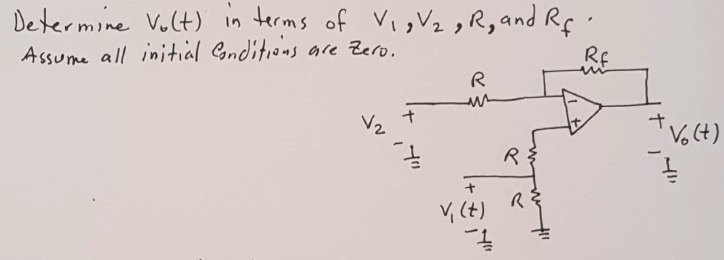 Determine V₀(t) in terms of V₁, V₂, R, and Rf.
Assume all initial Conditions are Zero.
Rf
R
V₂ +
-
-
+
+
V₀(t)
-
R
+
V₁(t)
R
-